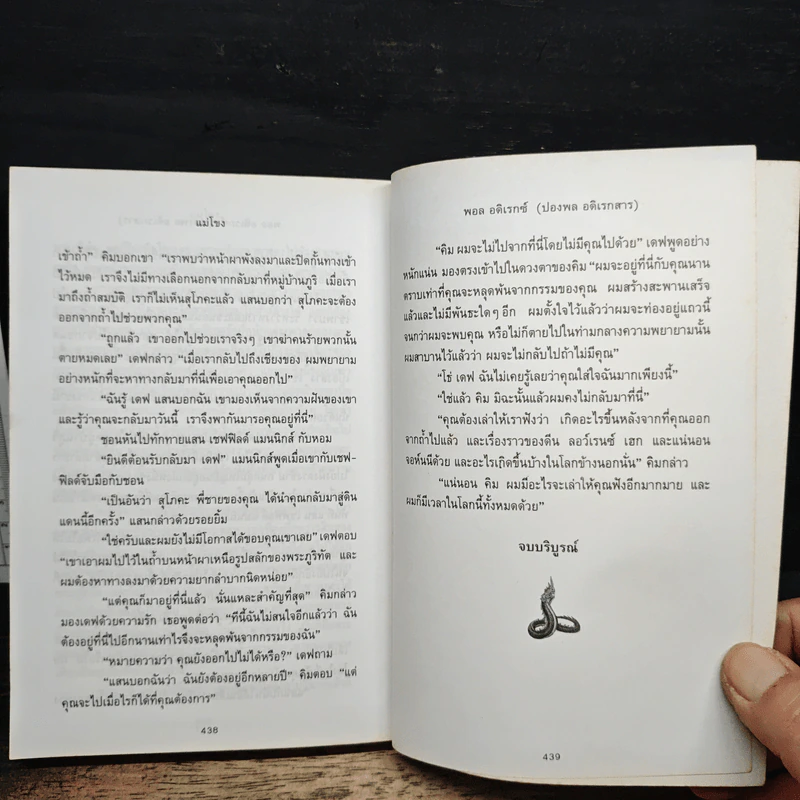 แม่โขง
เข้าถ้ำ” คิมบอกเขา “เราพบว่าหน้าผาพังลงมาและปิดกั้นทางเข้า
ไว้หมด เราจึงไม่มีทางเลือกนอกจากกลับมาที่หมู่บ้านภูริ เมื่อเรา
มาถึงถ้ำสมบัติ เราก็ไม่เห็นสุโภคะแล้ว แสนบอกว่า สุโภคะจะต้อง
ออกจากถ้ำไปช่วยพวกคุณ”
“ถูกแล้ว เขาออกไปช่วยเราจริงๆ เขาฆ่าคนร้ายพวกนั้น
ตายหมดเลย” เดฟกล่าว “เมื่อเรากลับไปถึงเชียงของ ผมพยายาม
อย่างหนักที่จะหาทางกลับมาที่นี่เพื่อเอาคุณออกไป”
“ฉันรู้ เดฟ แสนบอกฉัน เขามองเห็นจากความฝันของเขา
และรู้ว่าคุณจะกลับมาวันนี้ เราจึงพากันมารอคุณอยู่ที่นี่”
ชอนหันไปทักทายแสน เชฟฟิลด์ แมนนิกส์ กับหอม
“ยินดีต้อนรับกลับมา เดฟ” แมนนิกส์พูดเมื่อเขากับเชฟ-
ฟิลด์จับมือกับชอน
“เป็นอันว่า สุโภคะ พี่ชายของคุณ ได้นำคุณกลับมาสู่ดิน
แดนนี้อีกครั้ง” แสนกล่าวด้วยรอยยิ้ม
“ใช่ครับและผมยังไม่มีโอกาสได้ขอบคุณเขาเลย” เดฟตอบ
“เขาเอาผมไปไว้ในถ้ำบนหน้าผาเหนือรูปสลักของพระภูริทัต และ
ผมต้องหาทางลงมาด้วยความยากลำบากนิดหน่อย”
“แต่คุณก็มาอยู่ที่นี่แล้ว นั่นแหละสำคัญที่สุด” คิมกล่าว
มองเดฟด้วยความรัก เธอพูดต่อว่า “ทีนี้ฉันไม่สนใจอีกแล้วว่า ฉัน
ต้องอยู่ที่นี่ไปอีกนานเท่าไรจึงจะหลุดพ้นจากกรรมของฉัน”
“หมายความว่า คุณยังออกไปไม่ได้หรือ?” เดฟถาม
“แสนบอกฉันว่า ฉันยังต้องอยู่อีกหลายปี” คิมตอบ “แต่
คุณจะไปเมื่อไรก็ได้ที่คุณต้องการ”
438
พอล อดิเรกซ์ (ปองพล อดิเรกสาร)
“คิม ผมจะไม่ไปจากที่นี่โดยไม่มีคุณไปด้วย” เดฟพูดอย่าง
หนักแน่น มองตรงเข้าไปในดวงตาของคิม “ผมจะอยู่ที่นี่กับคุณนาน
ตราบเท่าที่คุณจะหลุดพ้นจากกรรมของคุณ ผมสร้างสะพานเสร็จ
แล้วและไม่มีพันธะใดๆ อีก ผมตั้งใจไว้แล้วว่าผมจะท่องอยู่แถวนี้
จนกว่าผมจะพบคุณ หรือไม่ก็ตายไปในท่ามกลางความพยายามนั้น
ผมสาบานไว้แล้วว่า ผมจะไม่กลับไปถ้าไม่มีคุณ”
“โช่ เดฟ ฉันไม่เคยรู้เลยว่าคุณใส่ใจฉันมากเพียงนี้”
“ใช่แล้ว คิม มิฉะนั้นแล้วผมคงไม่กลับมาที่นี่”
“คุณต้องเล่าให้เราฟังว่า เกิดอะไรขึ้นหลังจากที่คุณออก
จากถ้ำไปแล้ว และเรื่องราวของดีน ลอว์เรนซ์ เฮก และแน่นอน
จอห์นนีด้วย และอะไรเกิดขึ้นบ้างในโลกข้างนอกนั่น” คิมกล่าว
“แน่นอน คิม ผมมีอะไรจะเล่าให้คุณฟังอีกมากมาย และ
ผมก็มีเวลาในโลกนี้ทั้งหมดด้วย”
จบบริบูรณ์
439